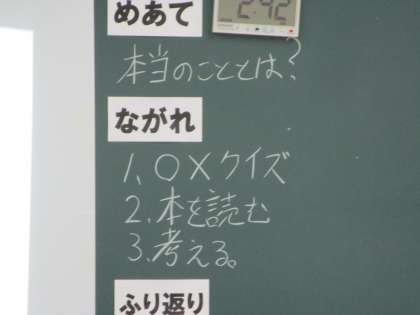 めあて
2:42
本当のこととは?
ながれ
1. ○×クイズ
2. 本を読む
3. 考える。
ふり返り